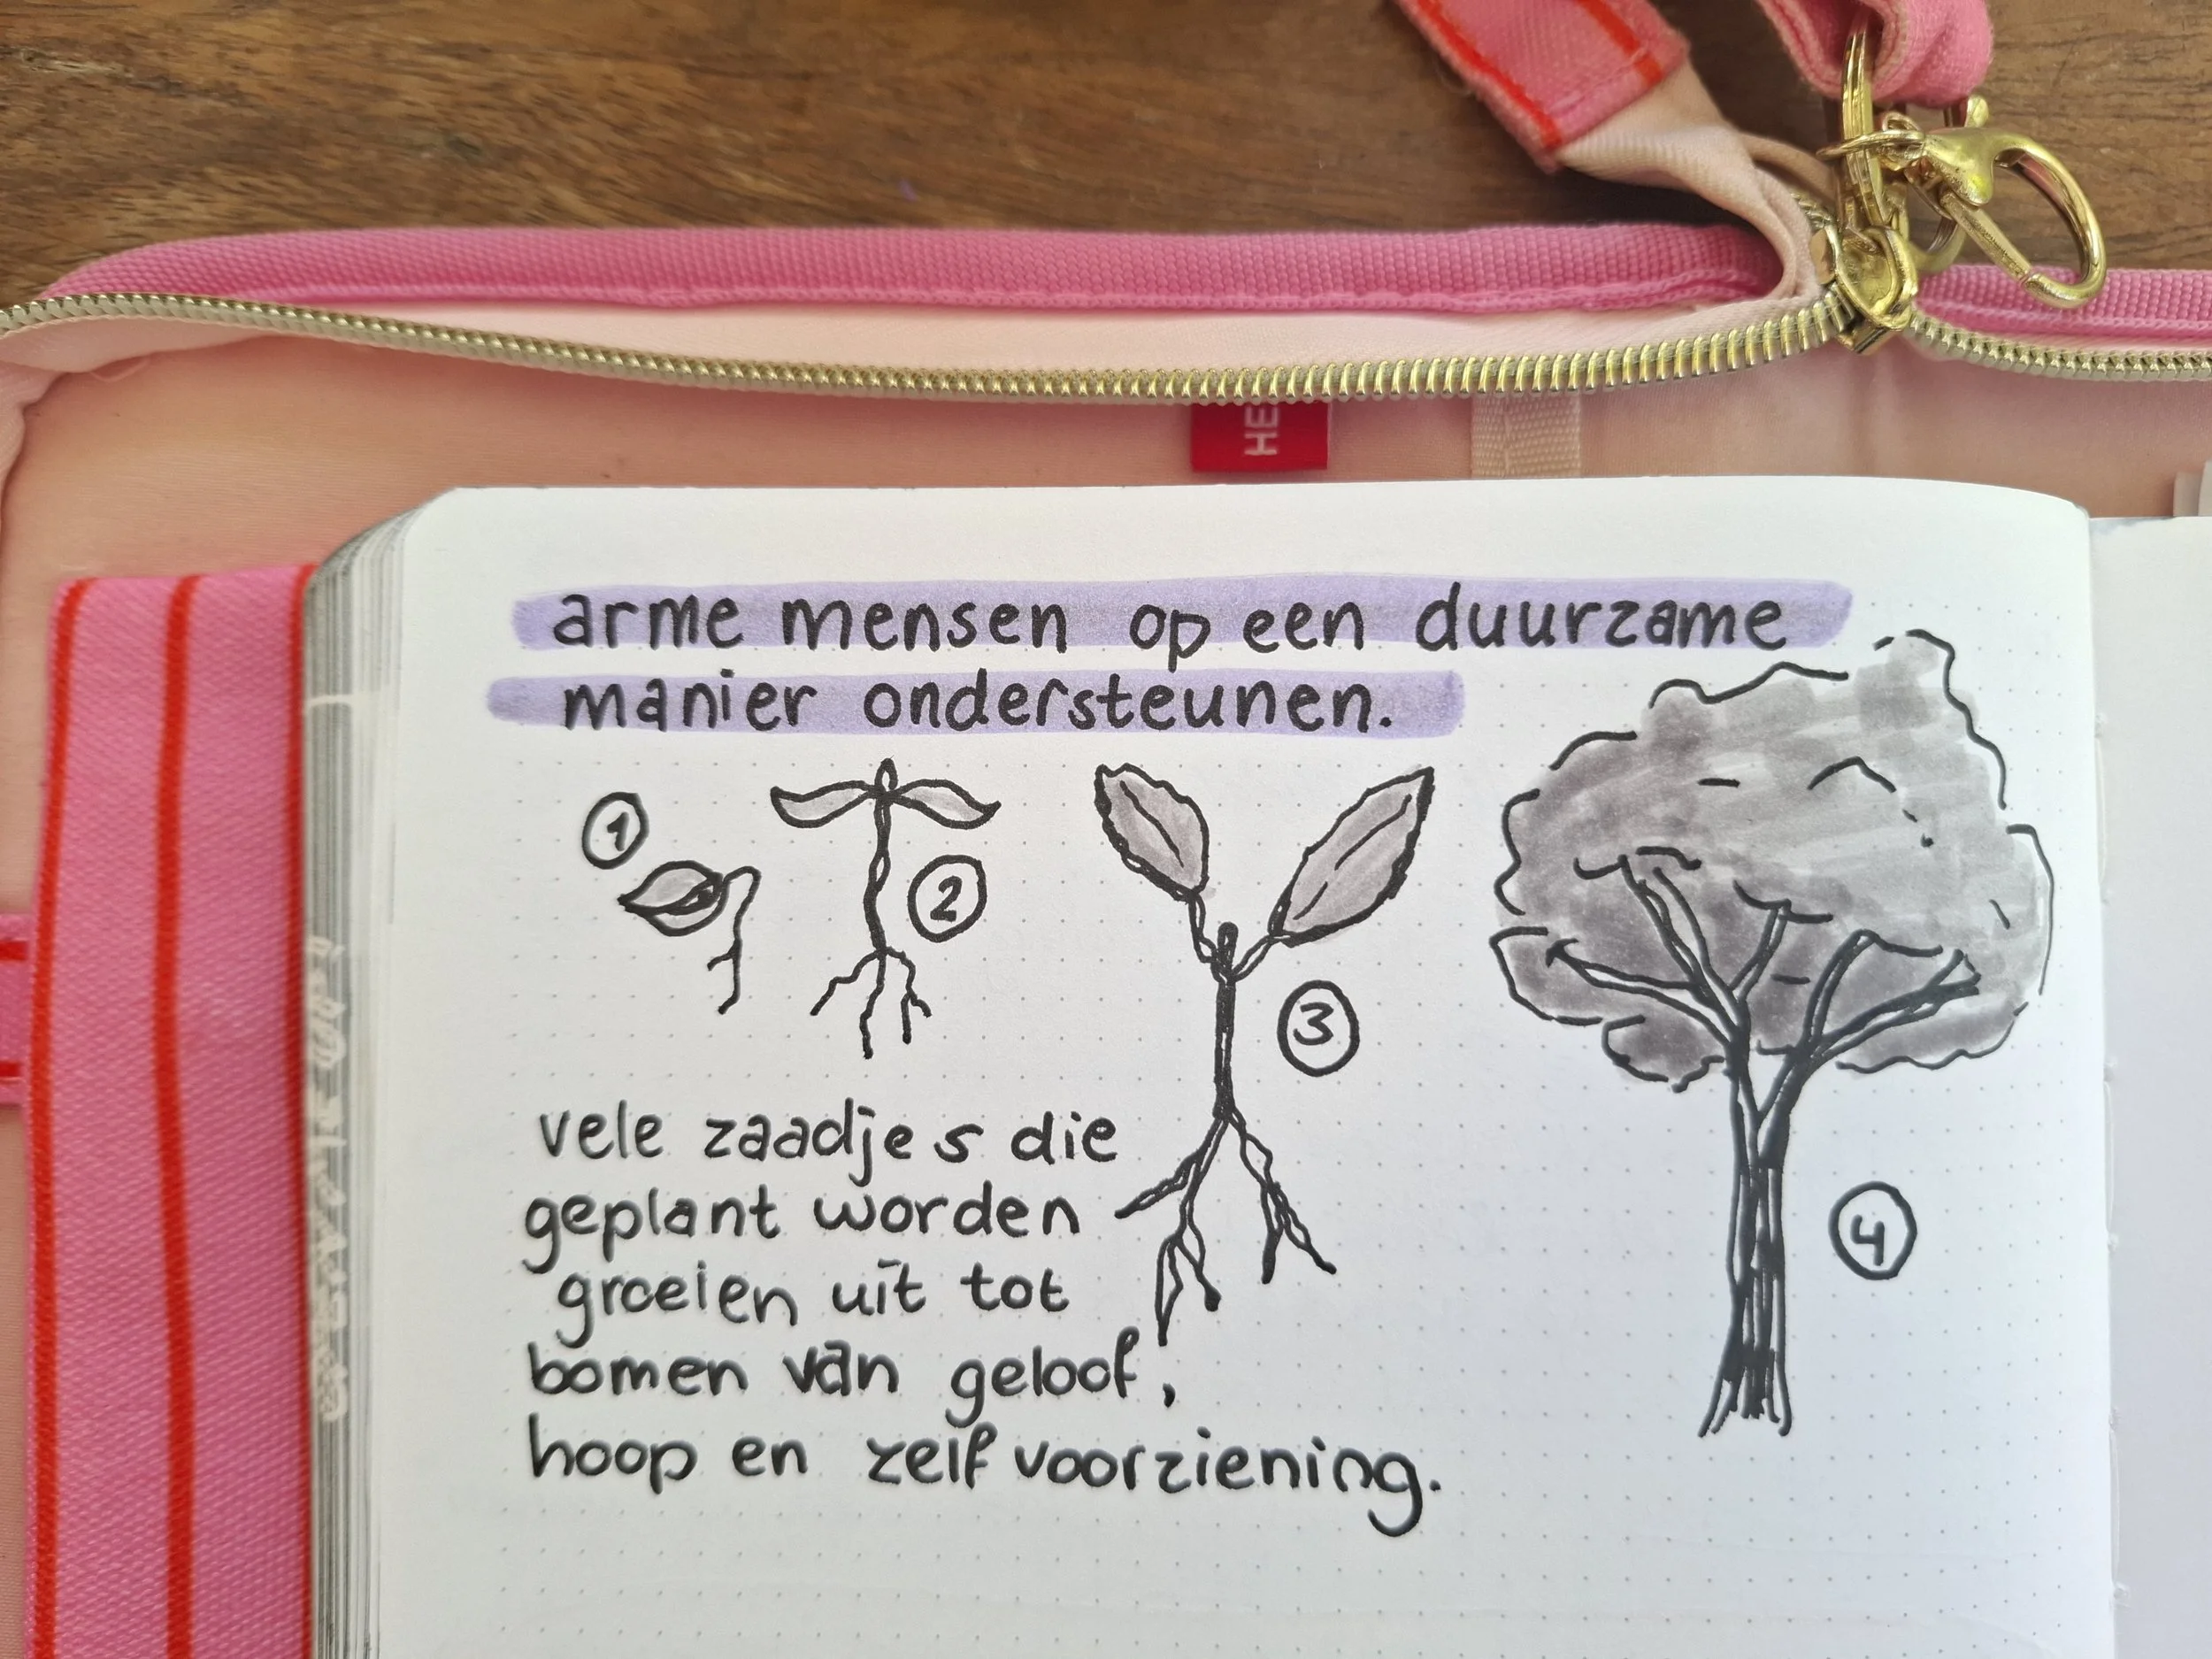 HE
arme mensen op een duurzame
manier ondersteunen.
1
2
3
4
vele zaadjes die
geplant worden
groeien uit tot
bomen van geloof,
hoop en zelfvoorziening.